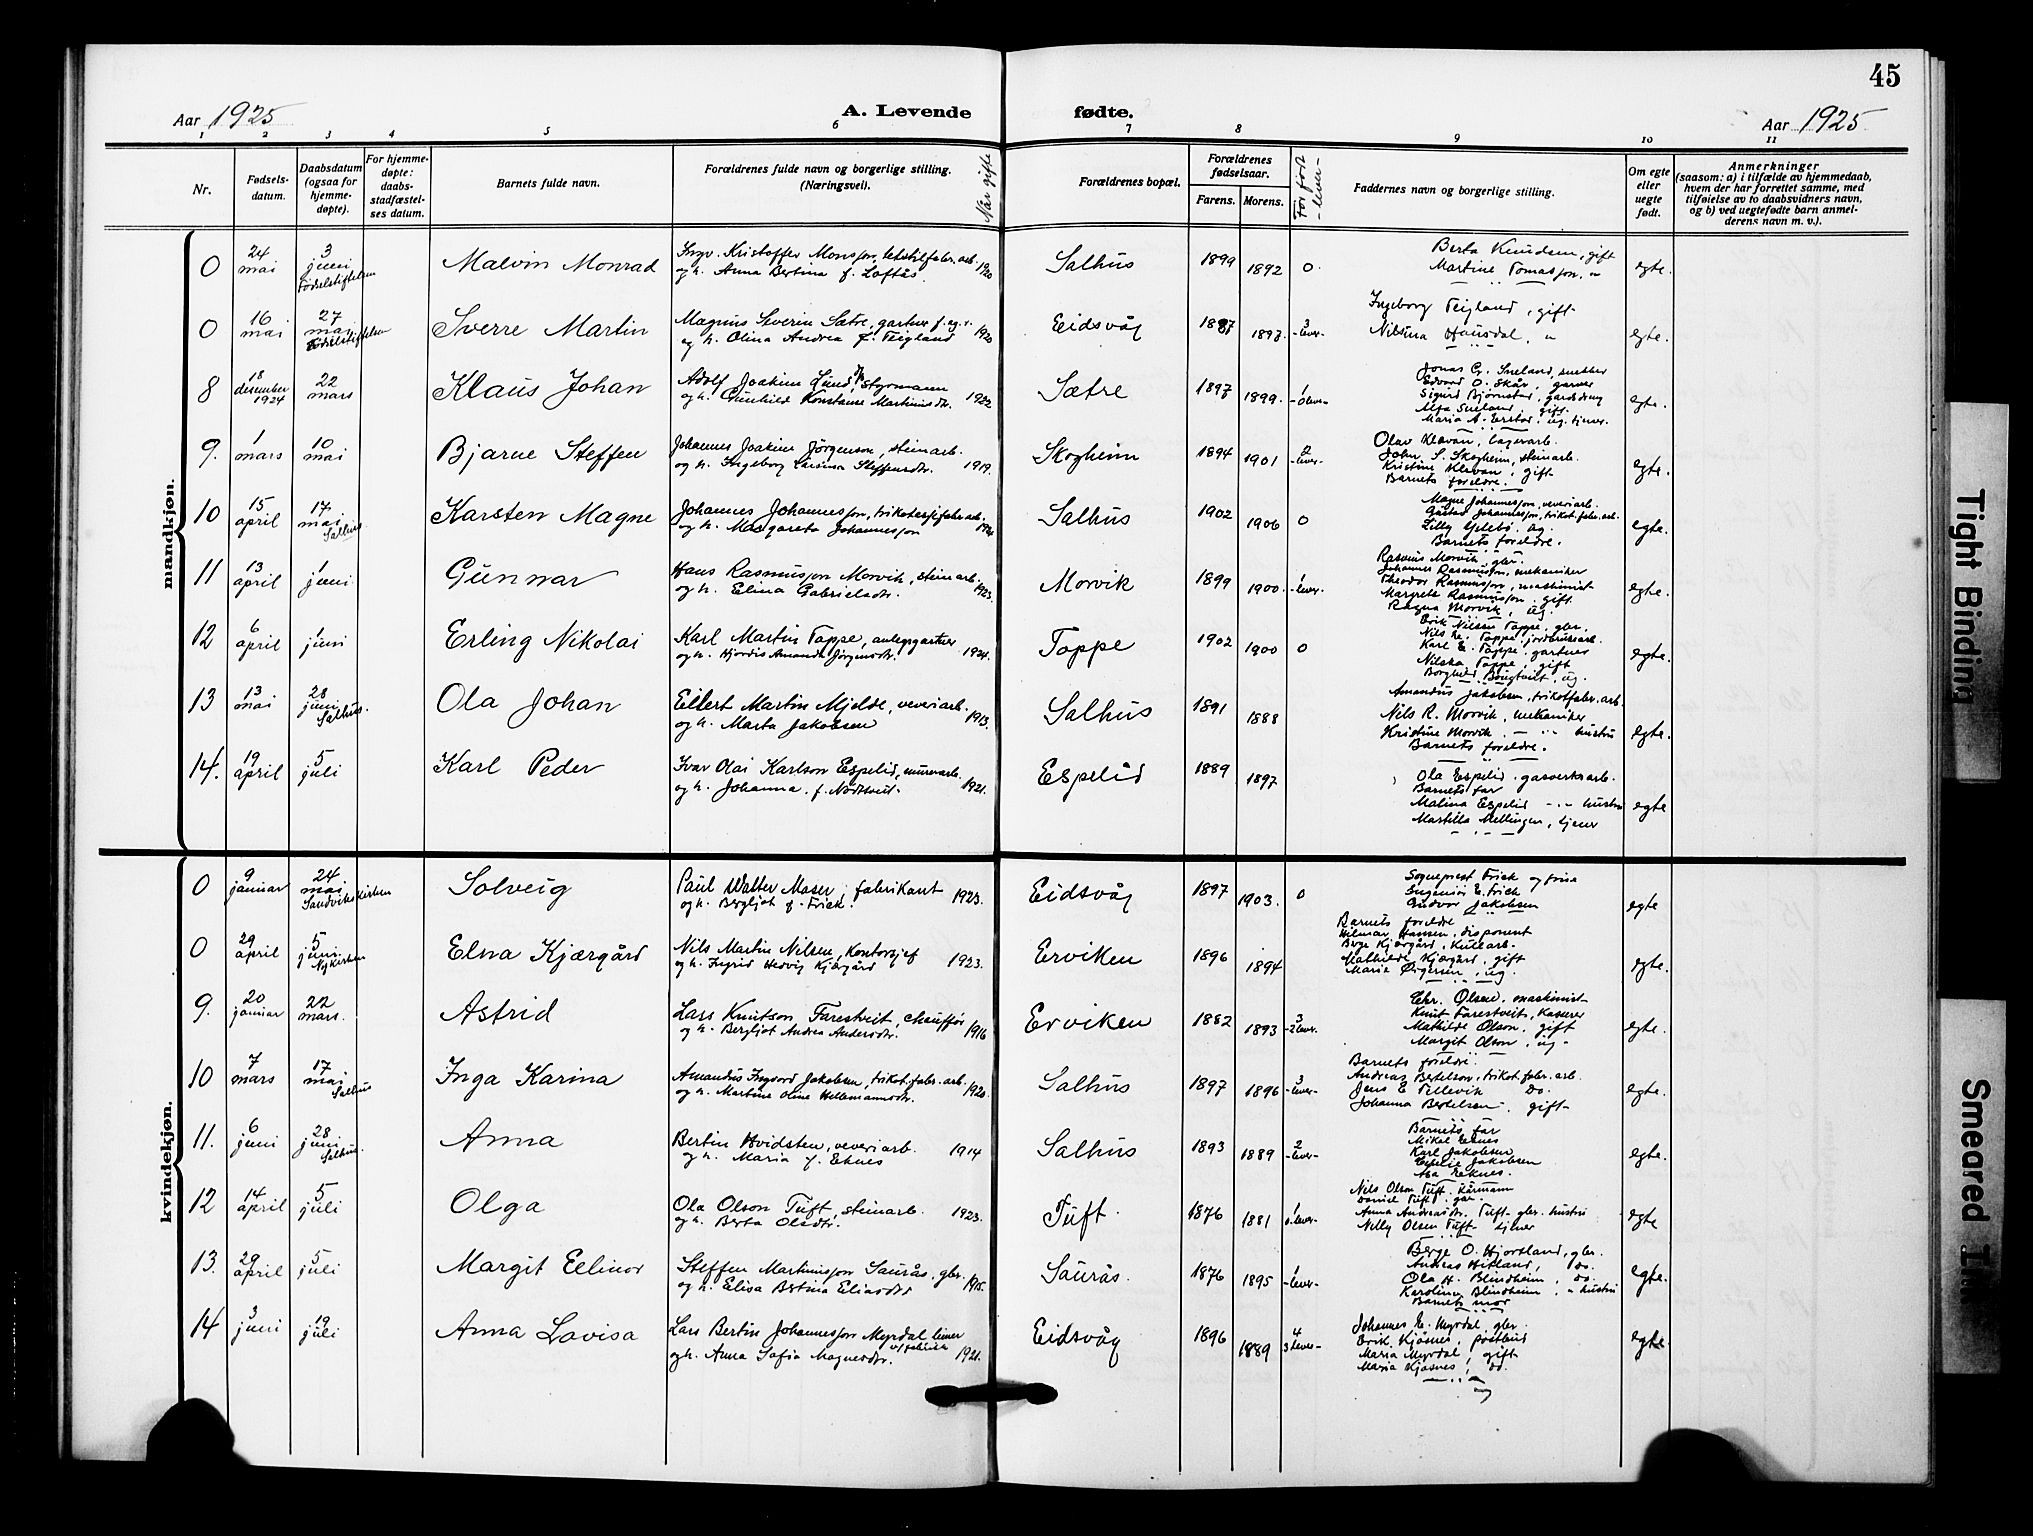 45
Aar 1925
A. Levende
fødte.
Aar 1925
1 2 3 4 5 6 7 8 9 10 11
Nr.
Fødsels-
datum.
Daabsdatum
(ogsaa for
hjemme-
døpte).
For hjemme-
døpte:
daabs-
stadfæstel-
ses datum.
Barnets fulde navn.
Forældrenes fulde navn og borgerlige stilling.
(Næringsvei).
Når gifte
Forældrenes bopæl.
Forældrenes
fødselsaar.
Farens. Morens.
For født
-lever-
Faddernes navn og borgerlige stilling.
Om egte
eller
uegte
født.
Anmerkninger
(saasom: a) i tilfælde av hjemmedaab,
hvem der har forrettet samme, med
tilføielse av to daabsvidners navn,
og b) ved uegtefødte barn anmel-
derens navn m. v.).
mandkjøn.
0 24 mai 3 juni Fødselstiftelsen Malvin Monrad
Ingv. Kristoffer Monsson, tekstilfabr. arb.
og h. Anna Bertina f. Loftås 1920
Salhus 1899 1892 0
Berta Knudsen, gift
Martine Tomasson, "
egte.
0 16 mai 27 mai Fødselstiftelsen Sverre Martin
Magnus Severin Sætre, gartner
og h. Olina Andrea f. Teigland 1920
Eidsvåg 1887 1897. 3 -lever-
Ingeborg Teigland, gift
Nilsina Hausdal, "
egte.
8 18 desember 1924 22 mars Klaus Johan
Adolf Joakim Lund, styrmann
og h. Gunhild Konstanse Martinusdtr. 1922
Sætre 1897 1899. 1 -0lever-
Jonas G. Sneland, snekker
Edvard O. Skår, garver
Sigurd Bjørnstad, gårdsdreng
Alfa Sneland, gift
Maria A. Erstad, ug. tjener.
egte.
9. 1 mars 10 mai Bjarne Steffen
Johannes Joakim Jörgenson, steinarb.
og h. Ingeborg Larsina Steffensdtr. 1919.
Skogheim 1894 1901 2 -lever-
Olav Klavan, lagerarb.
John S. Skogheim, steinarb.
Kristine Klavan, gift
Barnets foreldre.
egte.
10 15 april 17 mai Salhus Karsten Magne
Johannes Johannesson, trikotasjefabr. arb.
og h. Margareta Johannesson 1924
Salhus 1902 1906 0
Magne Johannesson, veveriarb.
Gustav Johannesson, trikot. fabr. arb.
Barnets foreldre.
egte.
11 13 april 1 juni Gunnar
Hans Rasmusson Morvik, steinarb.
og h. Elina Gabrielsdtr. 1923.
Morvik 1899 1900. 1 -lever-
Rasmus Morvik, gbr.
Johannes Rasmusson, mekaniker
Theodor Rasmusson, maskinist
Margrete Rasmusson, gift
Ragna Morvik, ug.
egte.
12 6 april 1 juni Erling Nikolai
Karl Martin Toppe, anlegsgartner
og h. Hjordis Amanda Jörgensdtr. 1924.
Toppe 1902 1900 0
Erik Nilssen Toppe, gbr.
Nils K. Toppe, jordbruksarb.
Karl E. Toppe, gartner
Nilska Toppe, gift
Borghild Bougtveit, ug.
egte.
13 13 mai 28 juni Salhus. Ola Johan
Eilert Martin Mjelde, veveriarb.
og h. Marta Jakobsen 1913.
Salhus 1891 1888
Amandus Jakobsen, trikotfabr. arb.
Nils R. Morvik, mekaniker
Kristine Morvik. - " - hustru
Barnets foreldre.
egte.
14. 19 april 5 juli Karl Peder
Ivar Olai Karlson Espelid, murerarb.
og h. Johanna f. Nødtveit. 1921.
Espelid 1889 1897
Ola Espelid, gasverksarb.
Barnets far
Malina Espelid - " - hustru
Martilla Mellingen, tjener
egte
kvindekjøn.
0 9 januar 24 mai Sandvikskirken Solveig
Paul Walter Moser, fabrikant
og h. Bergljot f. Frick. 1923.
Eidsvåg 1897 1903. 0
Sogneprest Frick og frue
Ingeniör E. Frick
Gudvor Jakobsen
egte
0 29 april 5 juni Nykirken Elna Kjærgård
Nils Martin Nilsen, kontorsjef
og h. Ingrid Hedvig Kjærgård 1923.
Erviken 1896 1894
Barnets foreldre
Hilmar Hansen, disponent
Berge Kjærgård, kullarb.
Mathilde Kjærgård, gift
Marie Örgersen, ug.
egte.
9. 20 januar 22 mars. Astrid
Lars Knutson Farestveit, chaufför
og h. Bergljot Andrea Andersdtr. 1916
Erviken 1882 1893 3 -2lever-
Chr. Olsen, maskinist
Knut Farestveit, kaserer
Mathilde Olson, gift
Margit Olson, ug
egte.
10 7 mars 17 mai Salhus Inga Karina
Amandus Ingvard Jakobsen, trikot. fabr. arb.
og h. Martine Oline Hellemannsdtr. 1920.
Salhus 1897 1896 3 -lever-
Barnets foreldre.
Andreas Bertelsen, trikot. fabr. arb.
Jens E Tellevik do.
Johanna Bertelsen, gift
egte.
11. 6 juni 28 juni Salhus. Anna
Bertin Hvidsten, veveriarb.
og h. Maria f. Eknes 1914
Salhus 1893 1889 2 -lever-
Barnets far
Mikal Eknes
Karl Jakobsen
Jakobsen
Eknes.
egte.
12 14 april 5 juli Olga
Ola Olson Tuft, steinarb.
og h. Berta Olsdtr. 1923.
Tuft. 1876 1881 1 0 lever-
Nils Olson Tuft, kårmann
Daniel Tuft, gbr.
Anna Andreasdtr. Tuft- gbr. hustru
Nelly Olsen Tuft- tjener
egte
13. 29 april 5 juli Margit Ellinor
Steffen Martinusson Saurås, gbr.
og h. Elisa Bertina Eliasdtr 1915.
Saurås. 1876 1895 1 -lever-
Berge O. Hjortland, gbr.
Andreas Hitland, do.
Ola H. Blindheim, do.
Karoline Blindheim, " hustru
Barnets mor
egte.
14 3 juni 19 juli Anna Lovisa
Lars Bertin Johannesson Myrdal
v/fabrikk
og h. Anna Sofia Magnesdtr. 1921.
Eidsvåg 1896 1889 4 3 lever-
Johannes K. Myrdal, gbr.
Erik Kjösnes, postbud
Maria Myrdal, gift
Maria Kjösnes, do.
egte.
Tight Binding
Smeared Ink